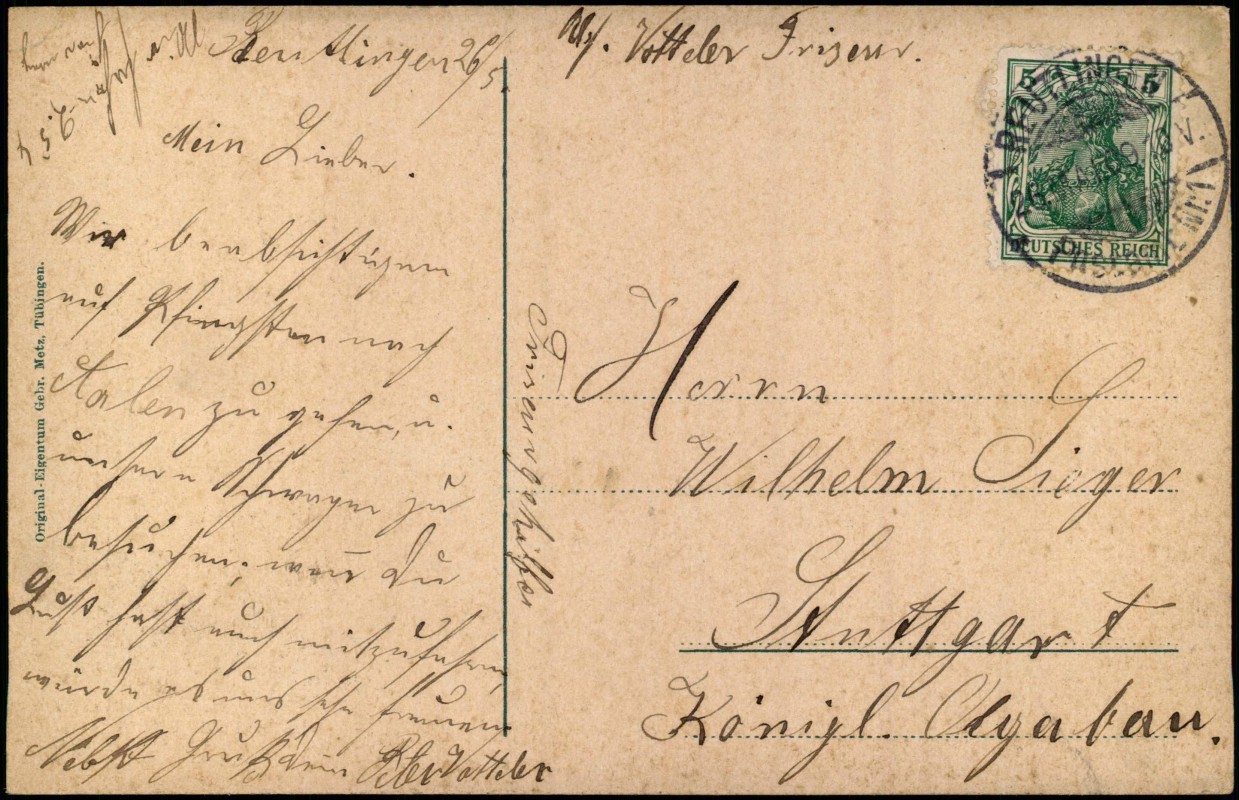 Reutlingen 26/5.
Mein Lieber.
Wir beabsichtigen
auf Pfingsten nach
Aalen zu gehen, u.
unsern Schwager zu
besuchen, wenn Du
Lust hast auch mitzufahren,
würde es uns sehr freuen
Nebst Gruß Dein Votteler
Original-Eigentum Gebr. Metz, Tübingen.
Abs. Votteler Friseur.
5 5
DEUTSCHES REICH
REUTLINGEN
26.
Friseurgehilfe
Herrn
Wilhelm Sieger
Stuttgart
Königl. Olgabau.